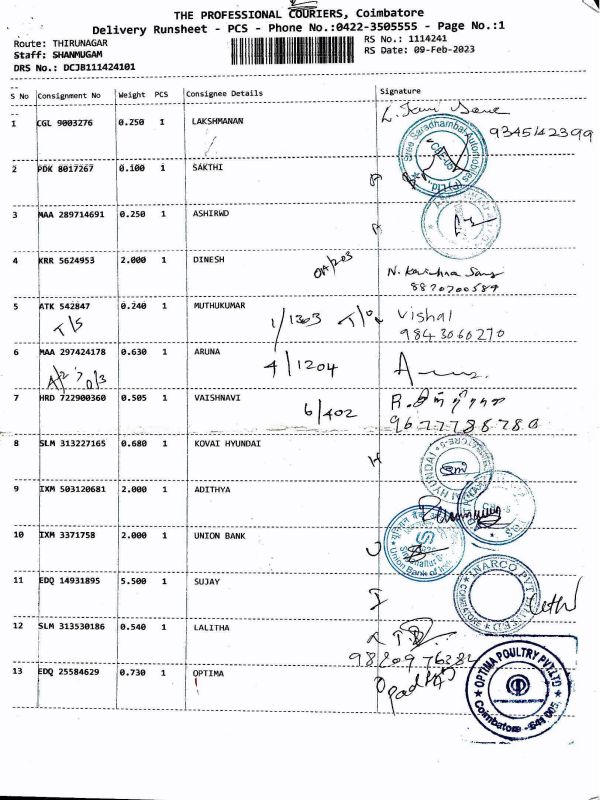 THE PROFESSIONAL COURIERS, Coimbatore
Delivery Runsheet - PCS - Phone No.:0422-3505555 - Page No.:1
Route: THIRUNAGAR
RS No.: 1114241
Staff: SHANMUGAM
RS Date: 09-Feb-2023
DRS No.: DCJB111424101
S No Consignment No Weight PCS Consignee Details Signature
1 CGL 9003276 0.250 1 LAKSHMANAN
9345142399
Sree Saradhambal Automobiles (P) Ltd.
2 PDK 8017267 0.100 1 SAKTHI
3 MAA 289714691 0.250 1 ASHIRWD
4 KRR 5624953 2.000 1 DINESH
N. Krishna
8870700589
5 ATK 542847 0.240 1 MUTHUKUMAR
T/S
1/1303
Vishal
9843060270
6 MAA 297424178 0.630 1 ARUNA
4/1204
7 HRD 722900360 0.505 1 VAISHNAVI
6/402
9677788780
8 SLM 313227165 0.680 1 KOVAI HYUNDAI
H
9 IXM 503120681 2.000 1 ADITHYA
10 IXM 3371758 2.000 1 UNION BANK
U
Union Bank of India
11 EDQ 14931895 5.500 1 SUJAY
I
COIMBATORE
12 SLM 313530186 0.540 1 LALITHA
13 EDQ 25584629 0.730 1 OPTIMA
OPTIMA POULTRY PVT LTD
Coimbatore - 641 005.